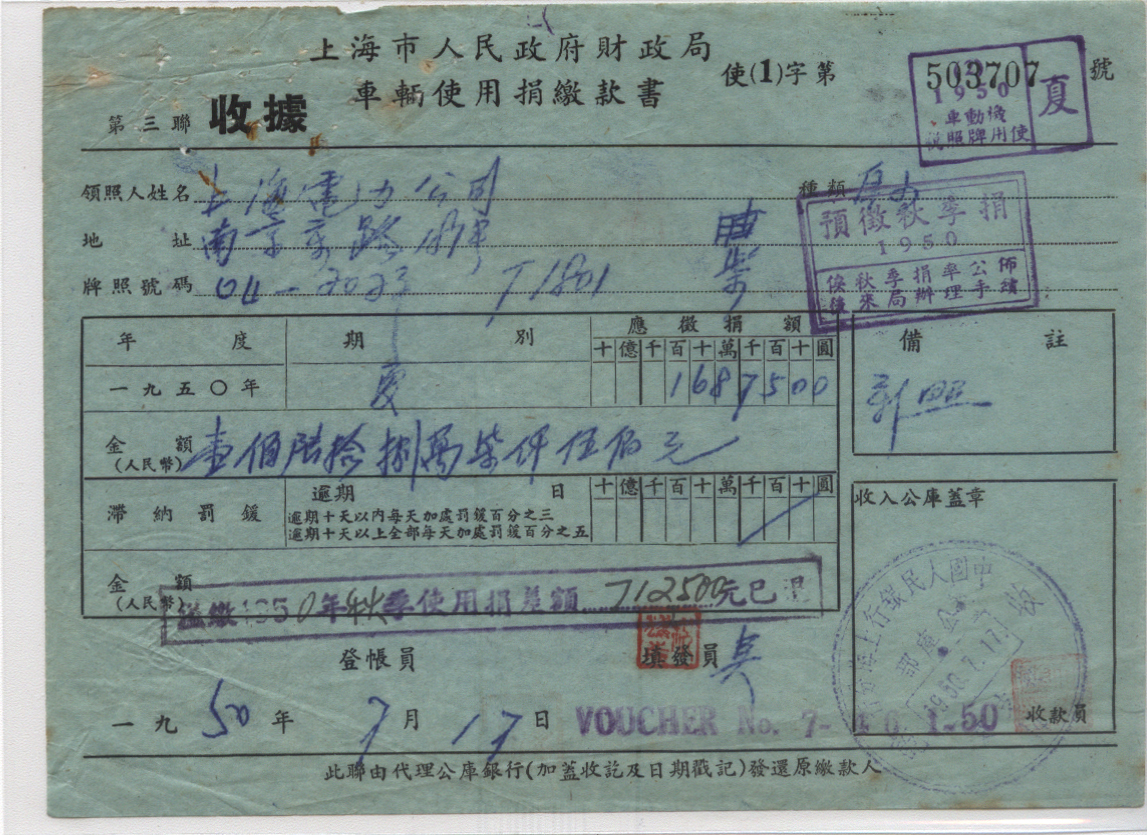 上海市人民政府財政局
車輛使用捐繳款書
使(1)字第 503707 號
第三聯 收據
1950 夏
機動車
使用牌照
領照人姓名 上海電力公司 種類
預徵秋季捐
1950
俟秋季捐率公佈
後來局辦理手續
地址 南京東路
牌照號碼 04-2023 T1801
年度 期別 應徵捐額 備註
十億千百十萬千百十圓
一九五〇年 夏 1687500
新照
金額(人民幣) 壹佰陆拾捌萬柒仟伍佰元
滯納罰鍰 逾期 日 十億千百十萬千百十圓 收入公庫蓋章
逾期十天以內每天加處罰鍰百分之三
逾期十天以上全部每天加處罰鍰百分之五
金額(人民幣)
溢繳1950年秋季使用捐差額 712500元已退
中國人民銀行上海
公庫部
收
1950.7.17
登帳員 填發員
一九50年7月17日 VOUCHER No. 7- 1-50 收款員
此聯由代理公庫銀行(加蓋收訖及日期戳記)發還原繳款人